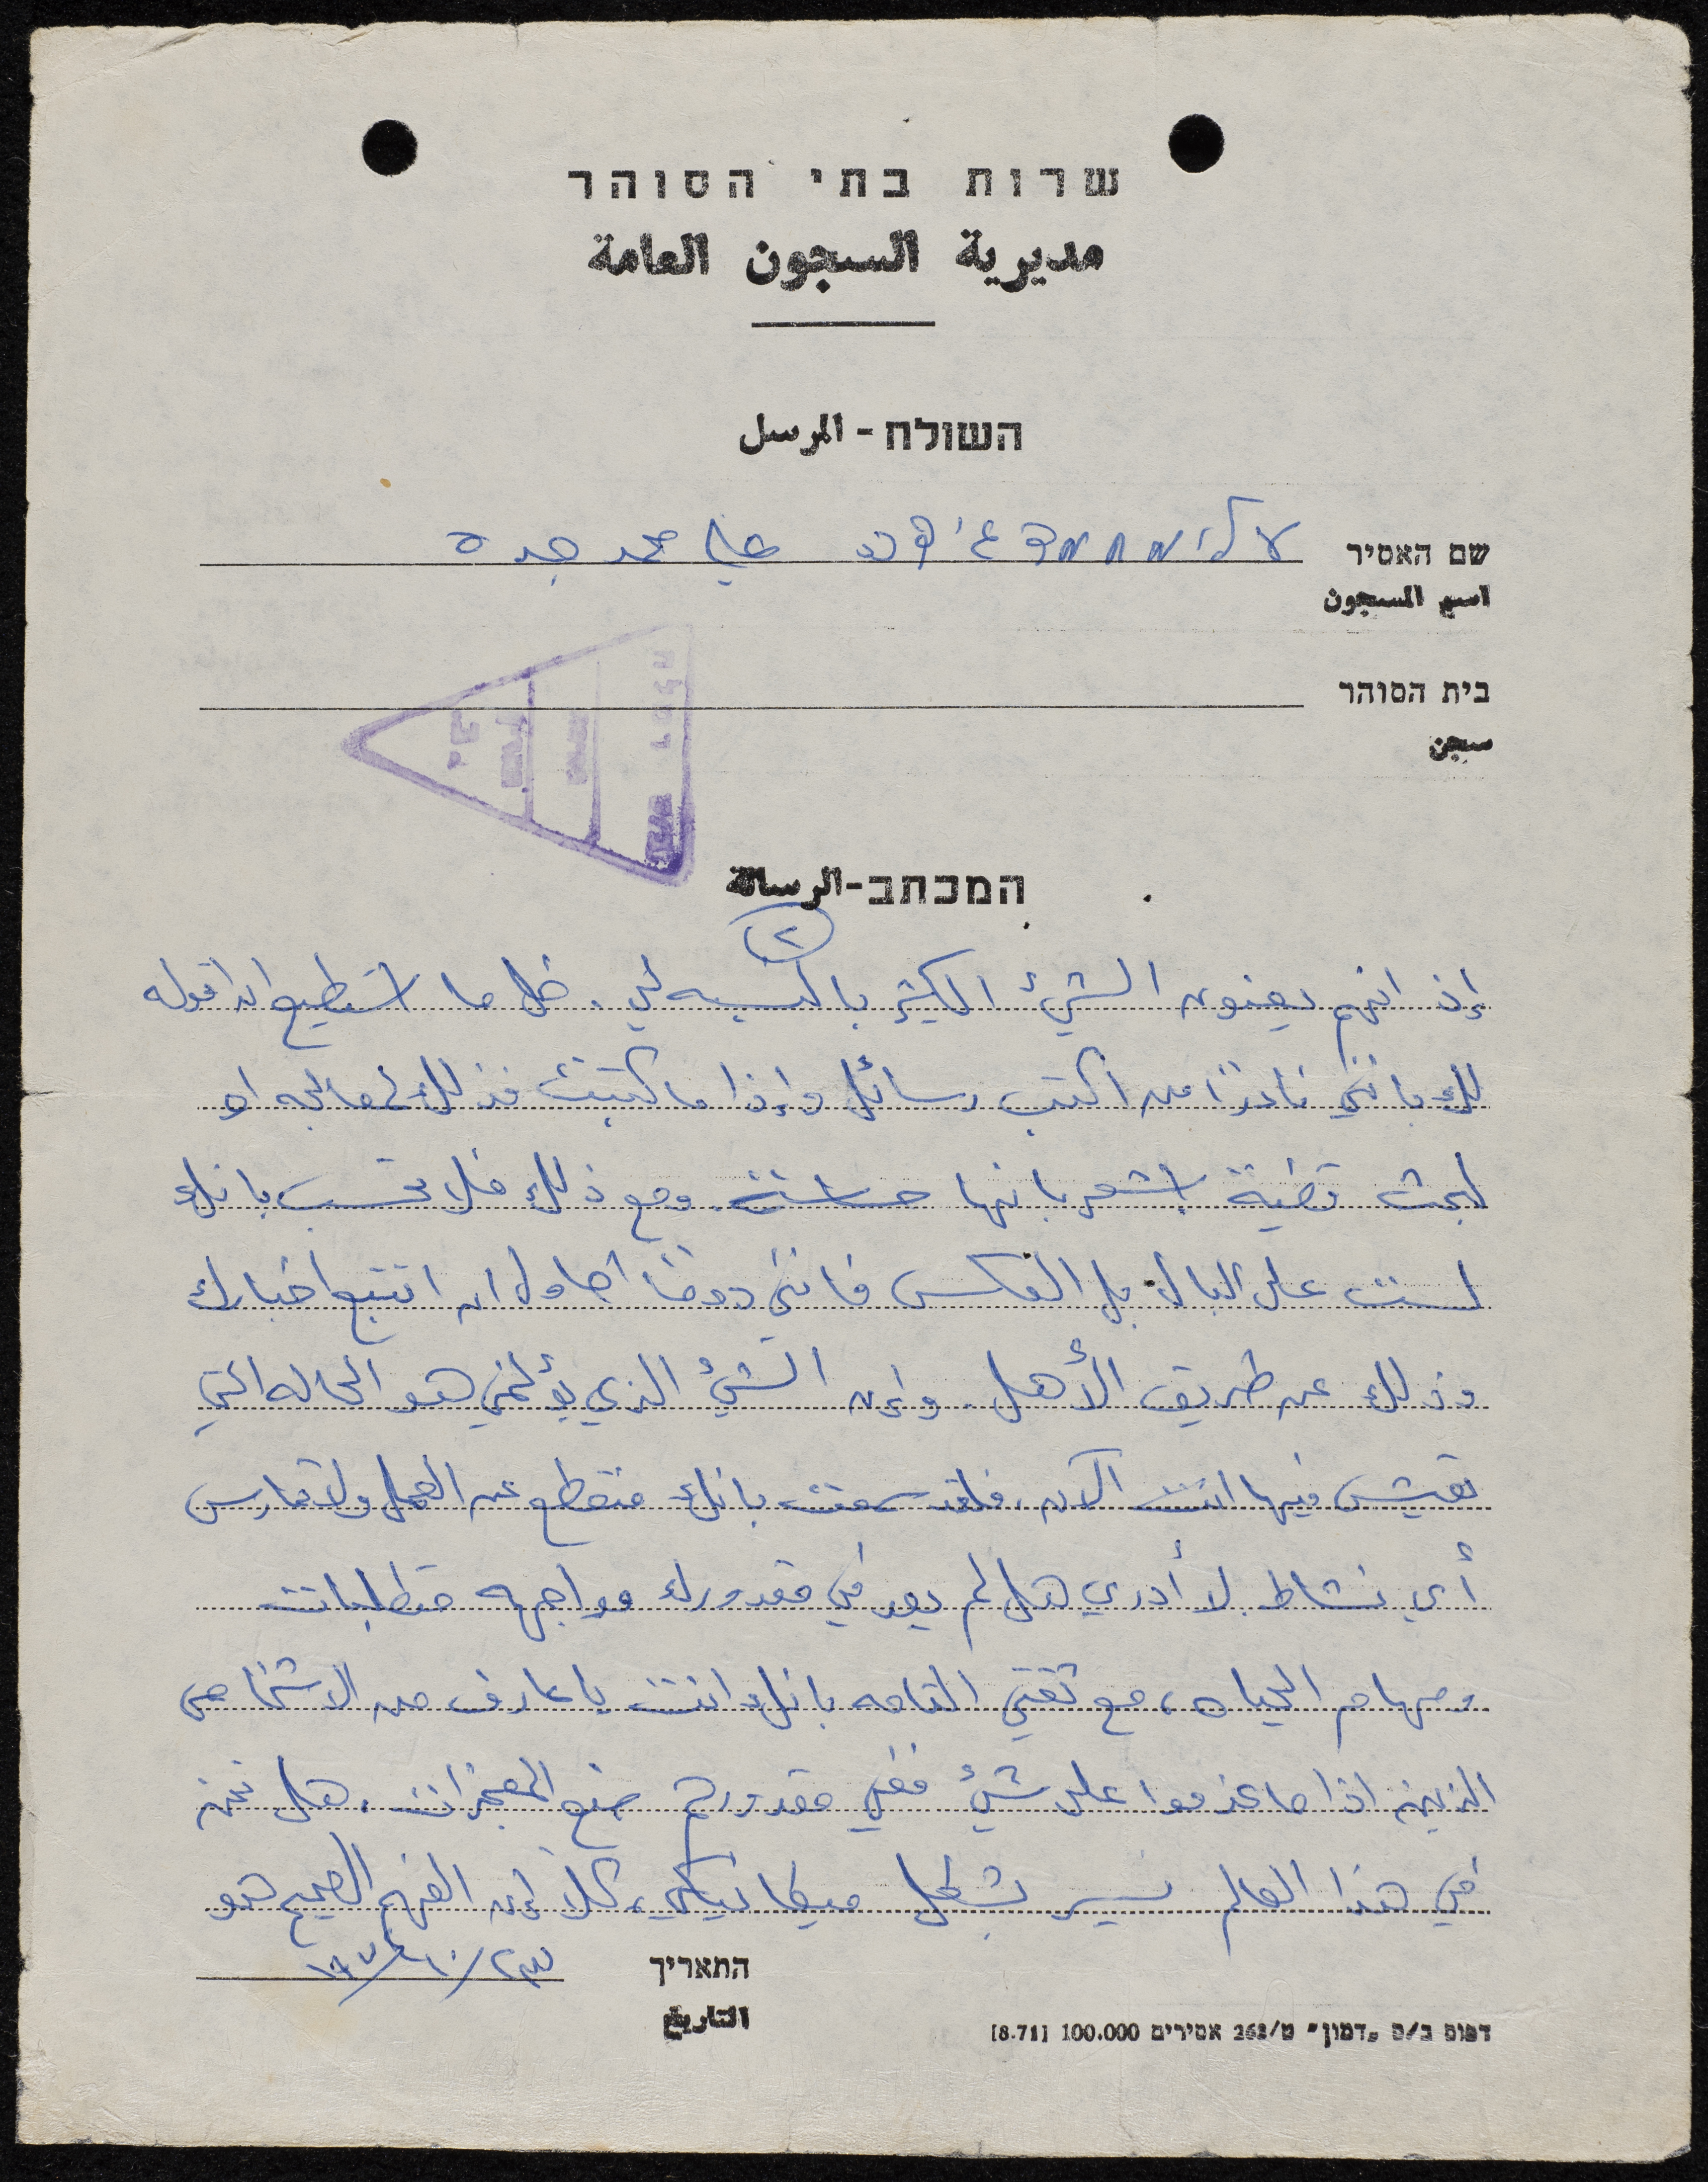 שרות בתי הסוהר
مديرية السجون العامة
השולח - المرسل
שם האסיר עלי מחמד ג'דה علي محمد جده
اسم المسجون
בית הסוהר
سجن
המכתב - الرسالة
٢
إذ انهم يعنون الشيء الكثير بالنسبه لي. كل ما استطيع ان اقوله
لك بانني نادرًا من اكتب رسائل وإذا ما كتبت فذلك لمعالجه او
لبحث قضية اشعر بانها حساسة. ومع ذلك فلا تحسب بانك
لست على البال بل العكس فانني دومًا احاول ان اتتبع اخبارك
وذلك عن طريق الأهل. وإن الشيء الذي يؤلمني هو الحاله التي
تعيش فيها انت الآن، فلقد سمعت بانك منقطع عن العمل ولا تمارس
أي نشاط. لا أدري هل لم يعد في مقدورك مواجهه متطلبات
ومهام الحياه، مع ثقتي التامه بانك انت يا عارف من الاشخاص
الذين اذا ما عزموا على شيء ففي مقدورهم صنع المعجزات. هل نحن
في هذا العالم نسير بشكل ميكانيكي، كلا إن الفهم الصحيح هو
התאריך
التاريخ
דפוס ב/ס "דמון" ט/262 אסירים 100.000 [8.71]